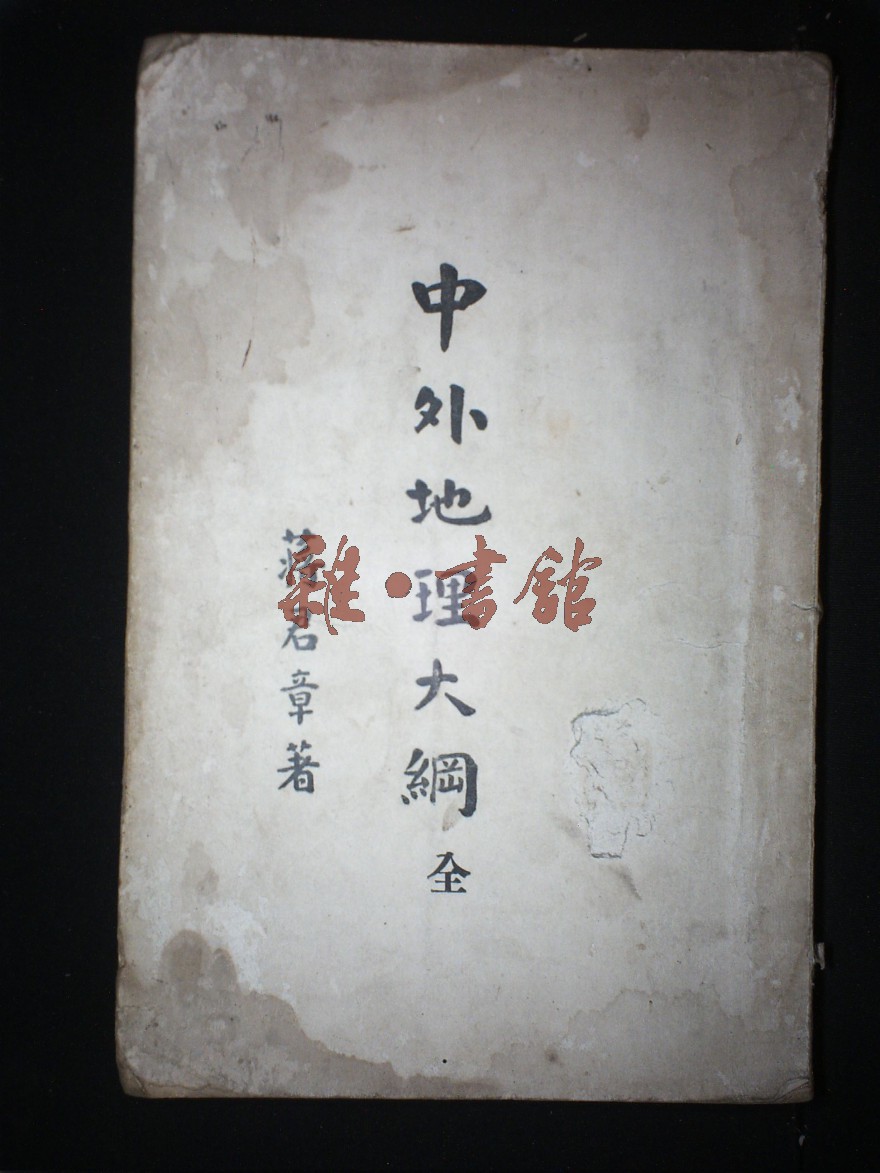 中外地理大綱 全
蔣君章著
雜·書館